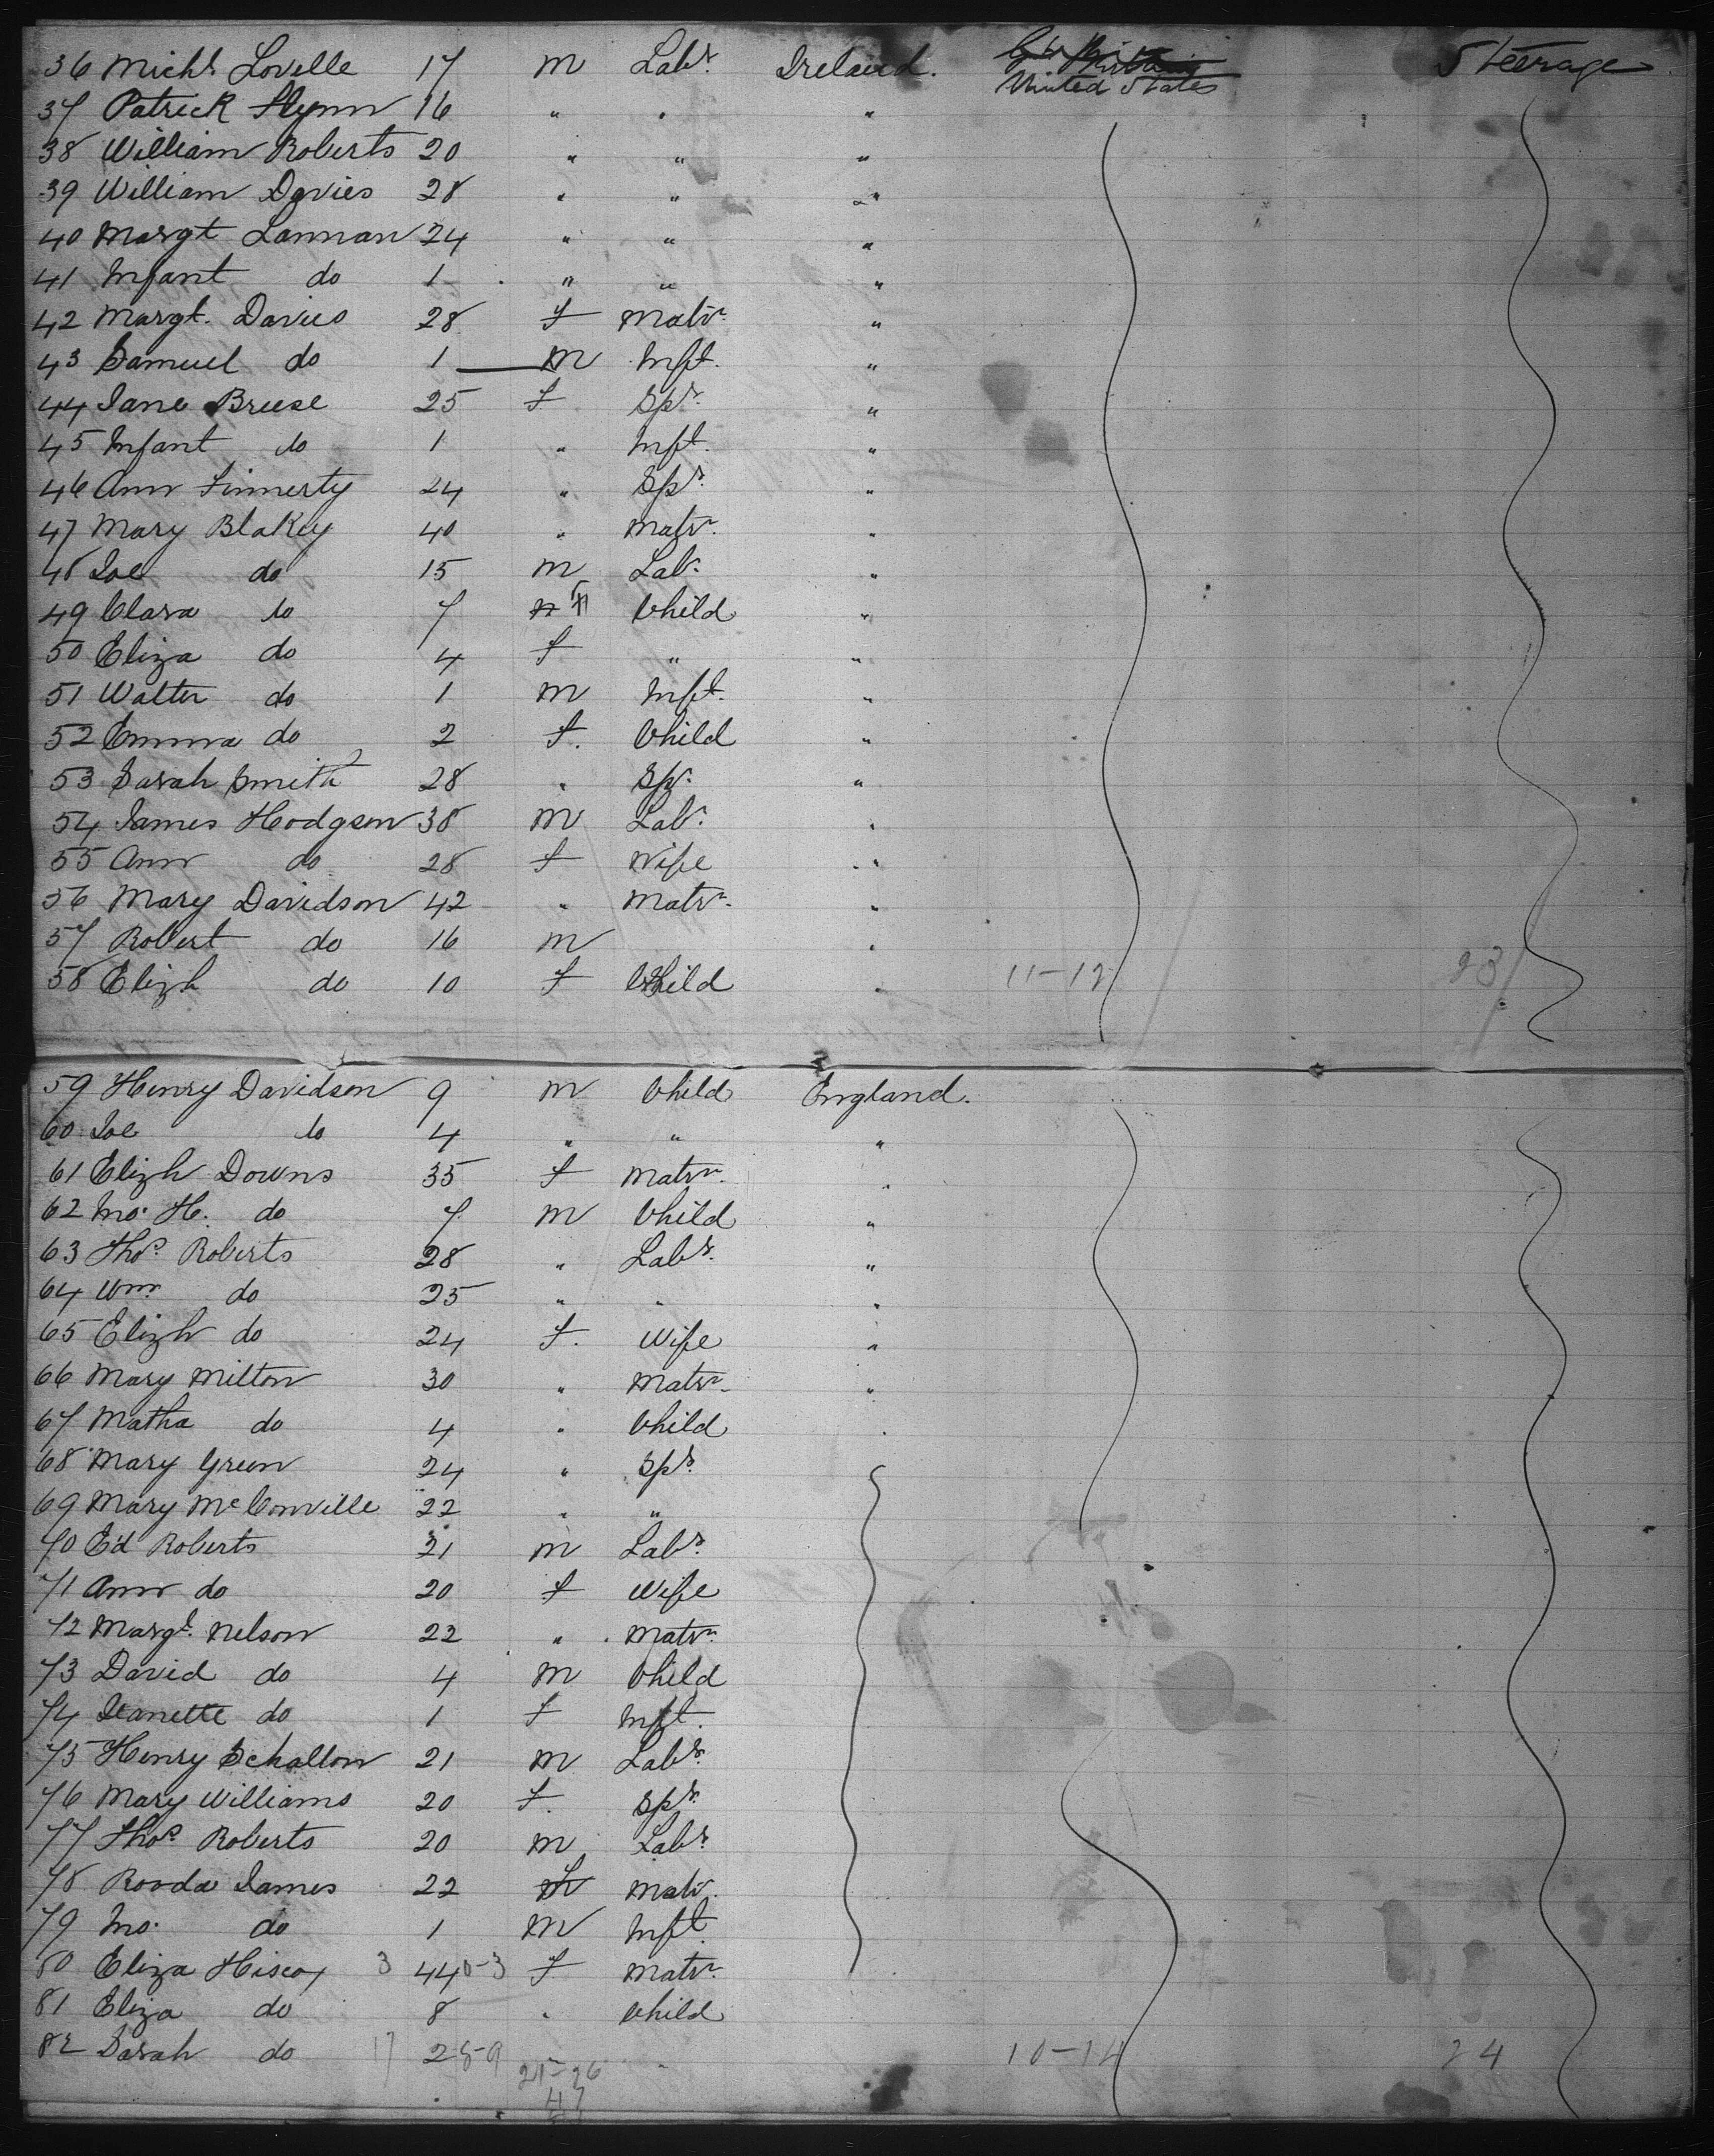 36 Michl Lovelle 17 m Labr. Ireland. Gt Britain United States Steerage
37 Patrick Flynn 16 " " "
38 William Roberts 20 " " "
39 William Davies 28 " " "
40 Margt Lannan 24 " " "
41 Infant do 1 " " "
42 Margt. Davies 28 f Matrn. "
43 Samuel do 1 m Inft. "
44 Jane Breese 25 f Spr. "
45 Infant do 1 " Inft. "
46 Ann Finnerty 24 " Spr. "
47 Mary Blakey 40 " Matrn. "
48 Joe do 15 m Labr. "
49 Clara do 7 f Child "
50 Eliza do 4 f " "
51 Walter do 1 m Inft. "
52 Emma do 2 f. Child "
53 Sarah Smith 28 " Spr. "
54 James Hodgson 38 m Labr. "
55 Ann do 28 f Wife "
56 Mary Davidson 42 " Matrn. "
57 Robert do 16 m "
58 Elizh do 10 f Child " 11-12 23
59 Henry Davidson 9 m Child England.
60 Joe do 4 " " "
61 Elizh Downs 35 f Matrn. "
62 Jno. H. do 7 m Child "
63 Thos. Roberts 28 " Labr. "
64 Wm. do 25 " " "
65 Elizh do 24 f. Wife "
66 Mary Milton 30 " Matrn. "
67 Matha do 4 " Child "
68 Mary Green 24 " Spr.
69 Mary McConville 22 " "
70 Ed Roberts 21 m Labr.
71 Ann do 20 f Wife
72 Margt. Nelson 22 " Matrn.
73 David do 4 m Child
74 Jeanette do 1 f Inft.
75 Henry Schallow 21 m Labr.
76 Mary Williams 20 f. Spr.
77 Thos. Roberts 20 m Labr.
78 Rooda James 22 f Matrn.
79 Jno. do 1 m Inft.
80 Eliza Hiscox 3 44 0-3 f Matrn.
81 Eliza do 8 " Child
82 Sarah do 17 2 " 10-14 24
21-26
47